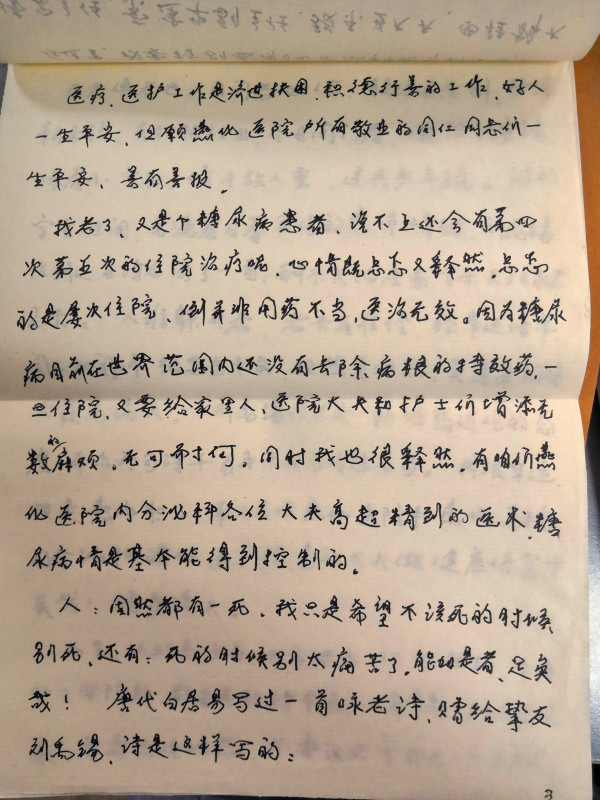 医疗、医护工作是济世扶困、积德行善的工作，好人
一生平安，但愿燕化医院所有敬业的同仁同志们一
生平安，善有善报。
我老了，又是个糖尿病患者，说不上还会有第四
次第五次的住院治疗呢，心情既忐忑又释然。忐忑
的是屡次住院、倒并非用药不当，医治无效。因为糖尿
病目前在世界范围内还没有去除病根的特效药，一
旦住院，又要给家里人、医院大夫和护士们增添无
数的麻烦。无可奈何。同时我也很释然，有咱们燕
化医院内分泌科各位大夫高超精到的医术，糖
尿病情是基本能得到控制的。
人：固然都有一死，我只是希望不该死的时候
别死，还有：死的时候别太痛苦了。能如是者，足矣
哉！ 唐代白居易写过一首咏老诗，赠给挚友
刘禹锡，诗是这样写的：
3